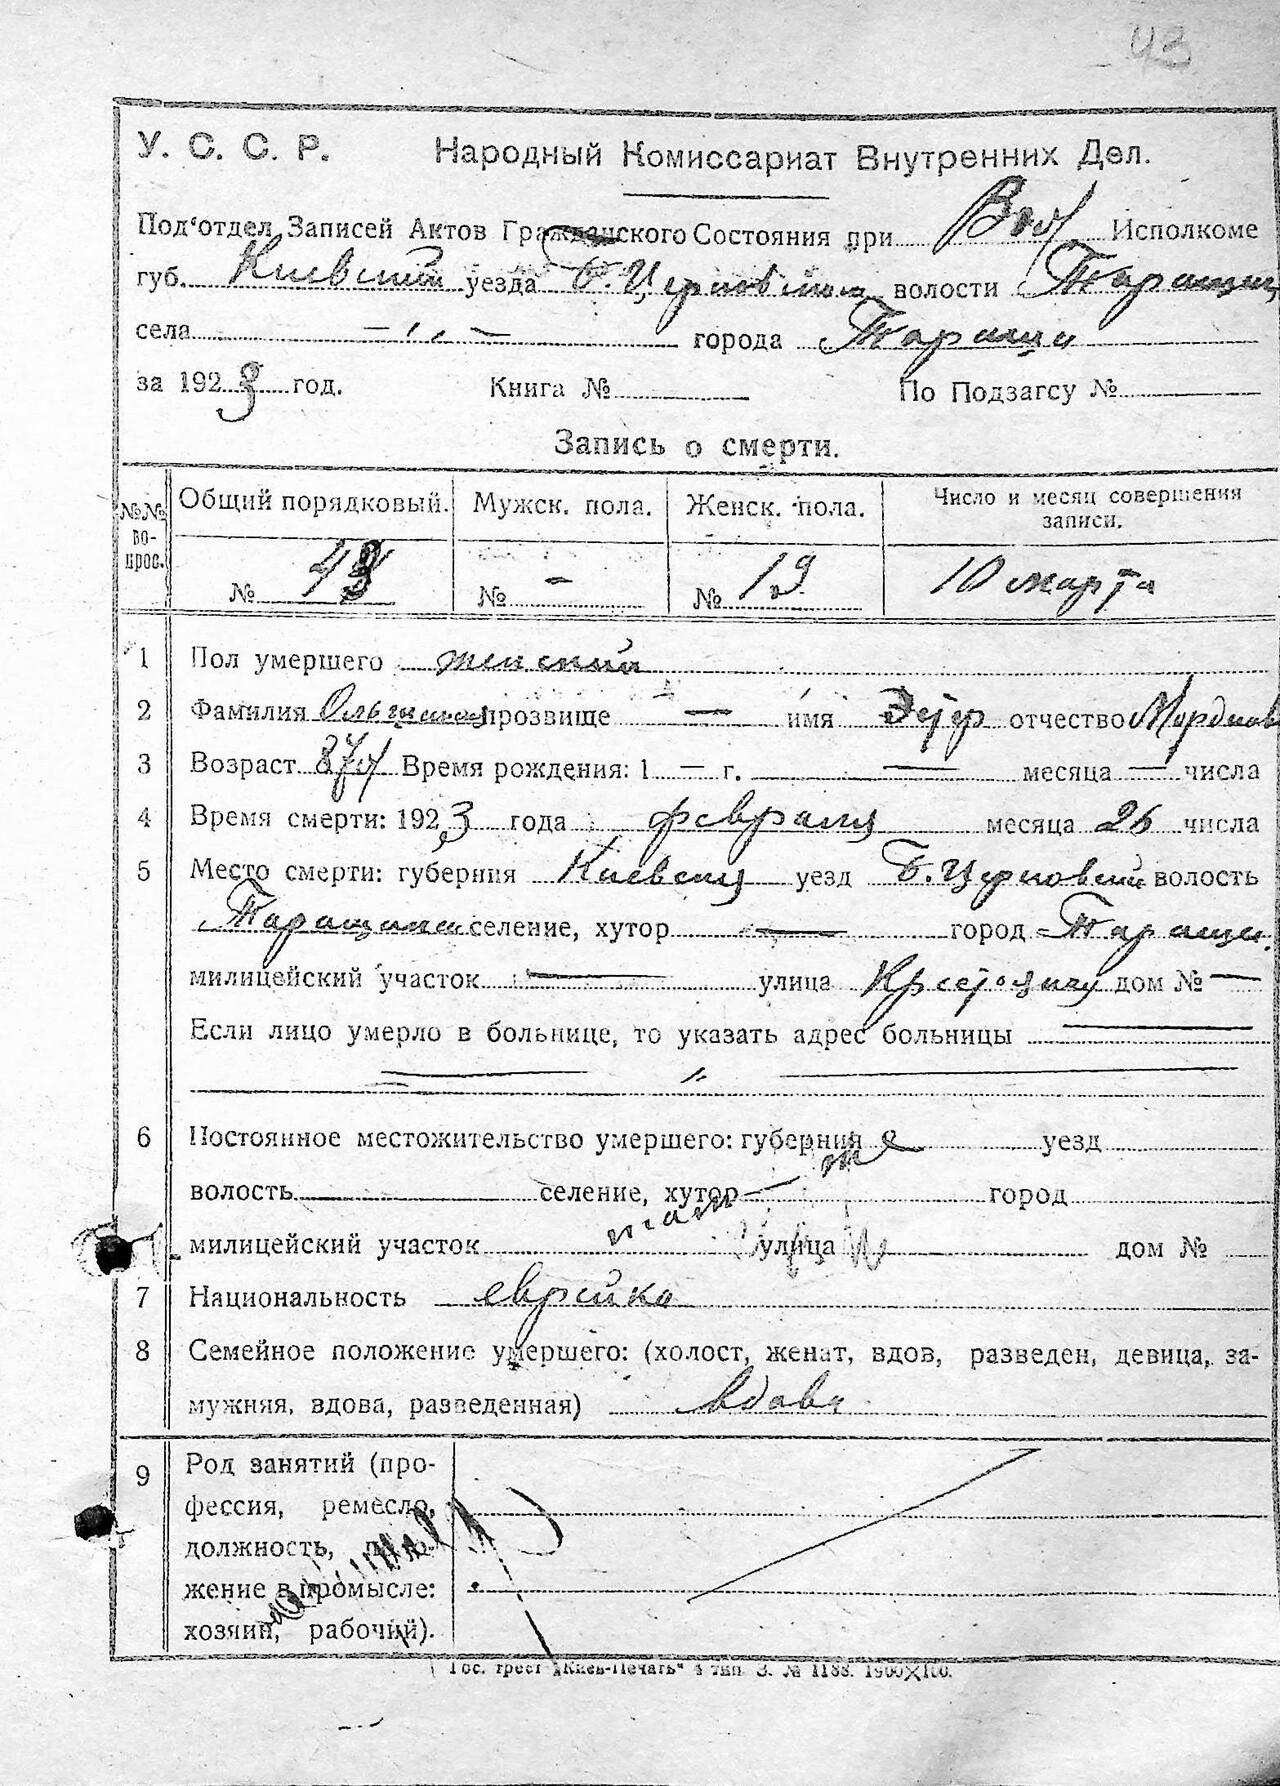 43
У. С. С. Р. Народный Комиссариат Внутренних Дел.
Под‘отдел Записей Актов Гражданского Состояния при Вол Исполкоме
губ. Киевский уезда Б. Церковский волости
села — „ — города Таращи
за 1923 год. Книга № По Подзагсу №
Запись о смерти.
№№ вопрос. Общий порядковый. Мужск. пола. Женск. пола. Число и месяц совершения записи.
№ 43 № — № 19 10 марта
1 Пол умершего женский
2 Фамилия прозвище — имя Эстер отчество
3 Возраст 87 л Время рождения: 1 — г. — месяца — числа
4 Время смерти: 1923 года февраля месяца 26 числа
5 Место смерти: губерния Киевская уезд Б. Церковский волость
Таращанская селение, хутор — город Таращи
милицейский участок — улица дом № —
Если лицо умерло в больнице, то указать адрес больницы —
— „ —
6 Постоянное местожительство умершего: губерния уезд
волость селение, хутор город
там — же
милицейский участок улица дом №
7 Национальность еврейка
8 Семейное положение умершего: (холост, женат, вдов, разведен, девица, за-
мужняя, вдова, разведенная) вдова
9 Род занятий (про-
фессия, ремесло,
должность, поло-
жение в промысле:
хозяин, рабочий).
Гос. трест „Киев-Печать“ 4 тип. З. № 1188. 1900×100.